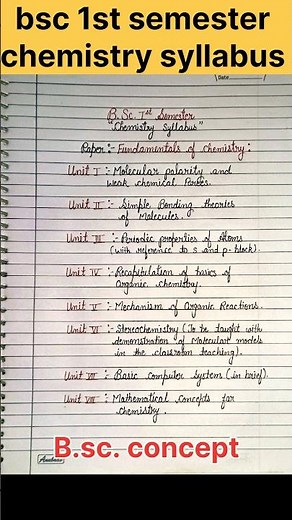 bsc 1st semester
chemistry syllabus
Date
B.Sc. Ist Semester
"Chemistry Syllabus"
Paper:- Fundamentals of chemistry:
Unit I :- Molecular polarity and
weak chemical forces.
Unit II :- Simple Bonding theories
of Molecules.
Unit III :- Periodic properties of Atoms
(with reference to s and p-block).
Unit IV :- Recapitulation of basics of
organic chemistry.
Unit V :- Mechanism of Organic Reactions.
Unit VI :- Stereochemistry (To be taught with
demonstration of Molecular models
in the classroom teaching).
Unit VII :- Basic computer systems (in brief).
Unit VIII :- Mathematical concepts for
chemistry.
B.sc. concept